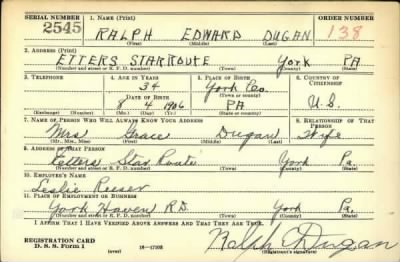 SERIAL NUMBER 1. NAME (Print) ORDER NUMBER
2545 RALPH EDWARD DUGAN 138
(First) (Middle) (Last)
2. ADDRESS (Print)
ETTERS STAR ROUTE York PA
(Number and street or R. F. D. number) (Town) (County) (State)
3. TELEPHONE 4. AGE IN YEARS 5. PLACE OF BIRTH 6. COUNTRY OF CITIZENSHIP
34 York Co.
DATE OF BIRTH (Town or county)
8 4 1906 PA U.S.
(Exchange) (Number) (Mo.) (Day) (Yr.) (State or country)
7. NAME OF PERSON WHO WILL ALWAYS KNOW YOUR ADDRESS 8. RELATIONSHIP OF THAT PERSON
Mrs Grace Dugan Wife
(Mr., Mrs., Miss) (First) (Middle) (Last)
9. ADDRESS OF THAT PERSON
Etters Star Route York Pa.
(Number and street or R. F. D. number) (Town) (County) (State)
10. EMPLOYER'S NAME
Leslie Reeser
11. PLACE OF EMPLOYMENT OR BUSINESS
York Haven R.D. York Pa.
(Number and street or R. F. D. number) (Town) (County) (State)
I AFFIRM THAT I HAVE VERIFIED ABOVE ANSWERS AND THAT THEY ARE TRUE.
REGISTRATION CARD
D. S. S. Form 1 (over) 16—17105 Ralph E Dugan
(Registrant's signature)